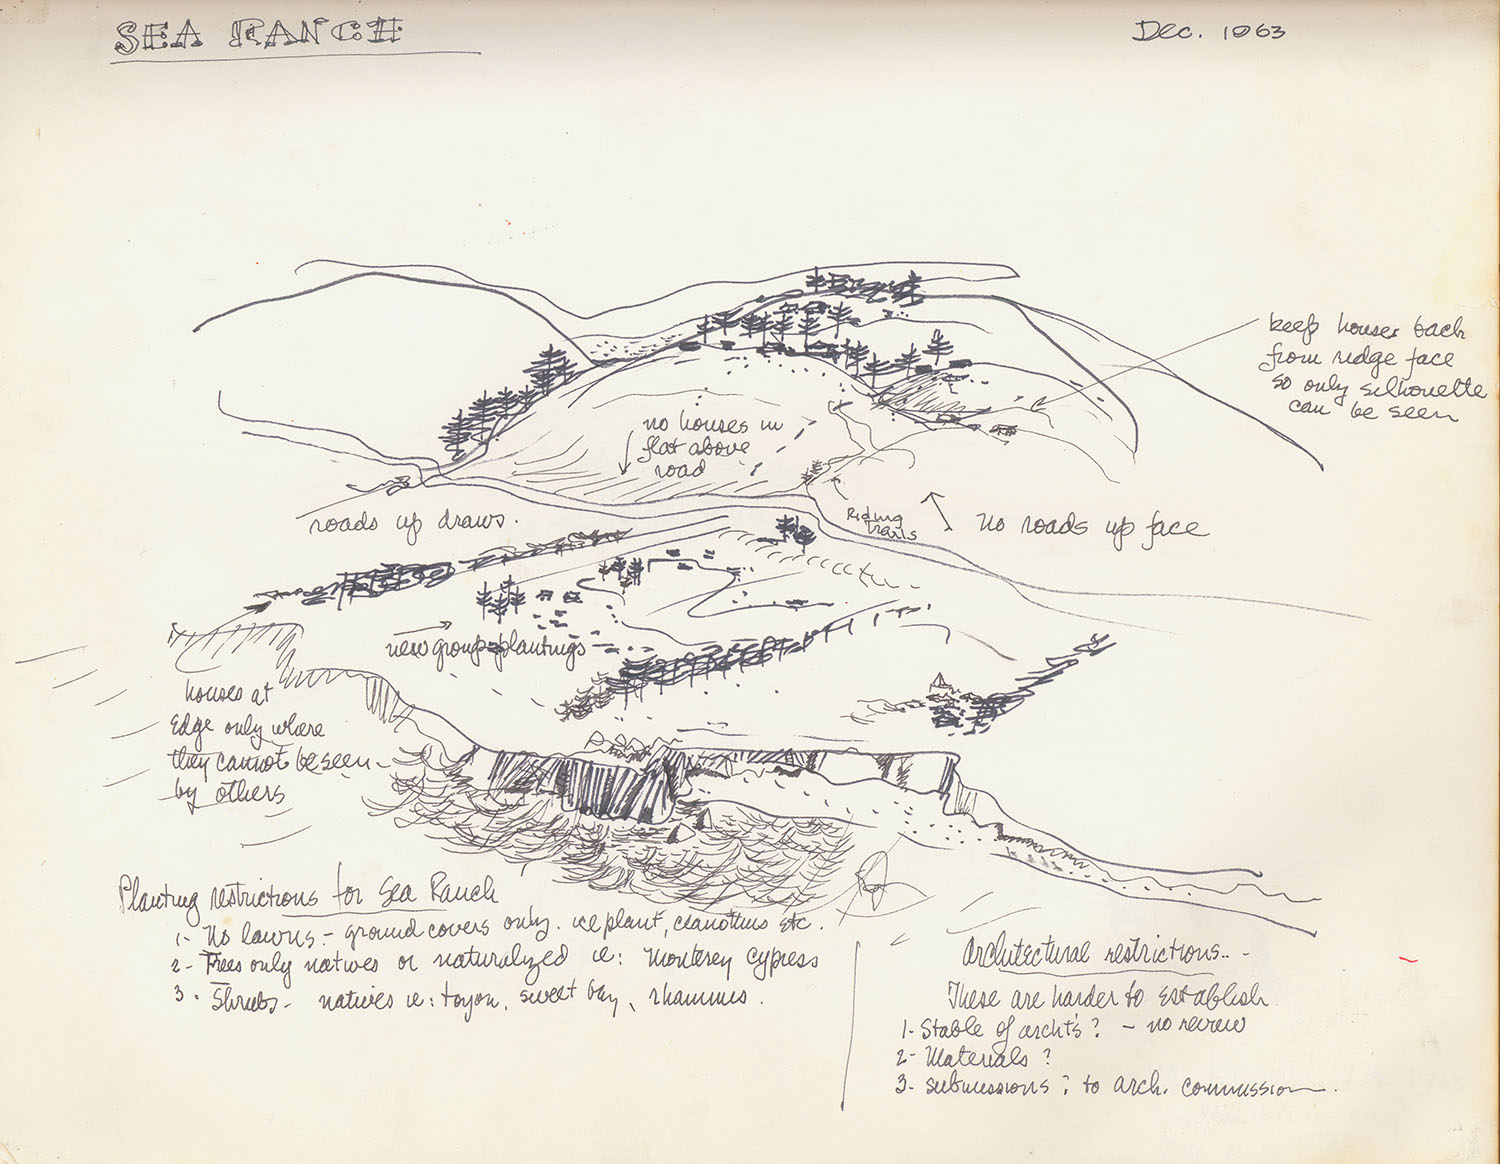 SEA RANCH
Dec. 1963
keep houses back
from ridge face
so only silhouette
can be seen
no houses in
flat above
road
roads up draws.
Riding
trails
No roads up face
new group plantings
houses at
Edge only where
they cannot be seen -
by others
Planting restrictions for Sea Ranch
1- No lawns - ground covers only. ice plant, ceanothus etc.
2- Trees only natives or naturalized ie: Monterey Cypress
3- Shrubs - natives ie: toyon, sweet bay, rhamnus.
Architectural restrictions.. -
These are harder to establish
1- Stable of archt's? - no review
2- Materials?
3- submissions? to arch. commission.